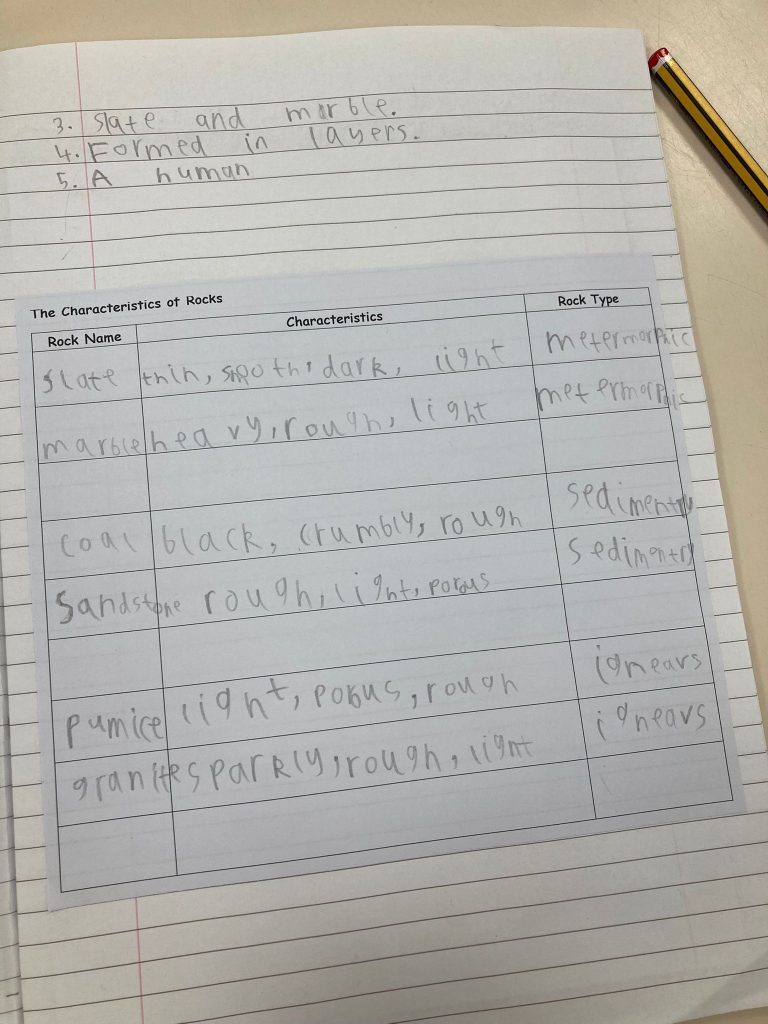 3. Slate and marble.
4. Formed in layers.
5. A human
The Characteristics of Rocks
Rock Name Characteristics Rock Type
slate thin, smooth, dark, light metermorphic
marble heavy, rough, light metermorphic
coal black, crumbly, rough sedimentry
Sandstone rough, light, porus sedimentry
pumice light, porus, rough ignears
granite sparkly, rough, light ignears